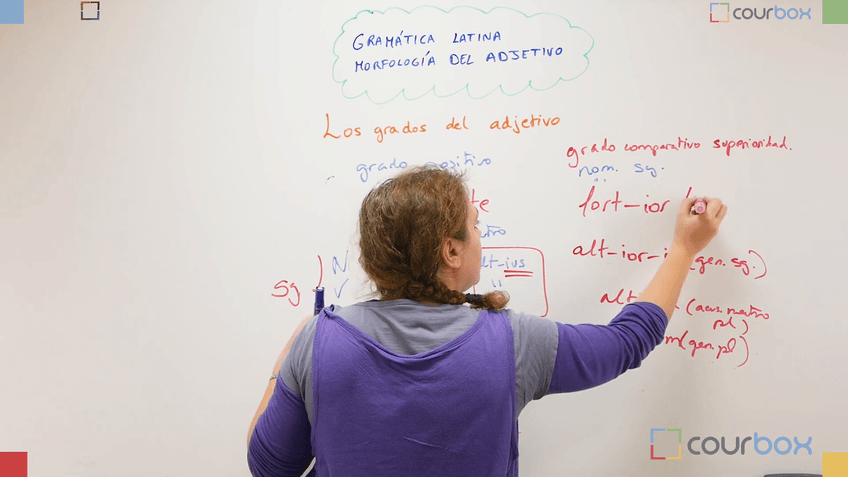 courbox
GRAMÁTICA LATINA
MORFOLOGÍA DEL ADJETIVO
Los grados del adjetivo
grado positivo
grado comparativo superioridad.
nom. sg.
fort-ior
alt-ior- (gen. sg.)
sg
N
V
-ius
"
alt (acu. neutro
pl)
m (gen. pl)
courbox